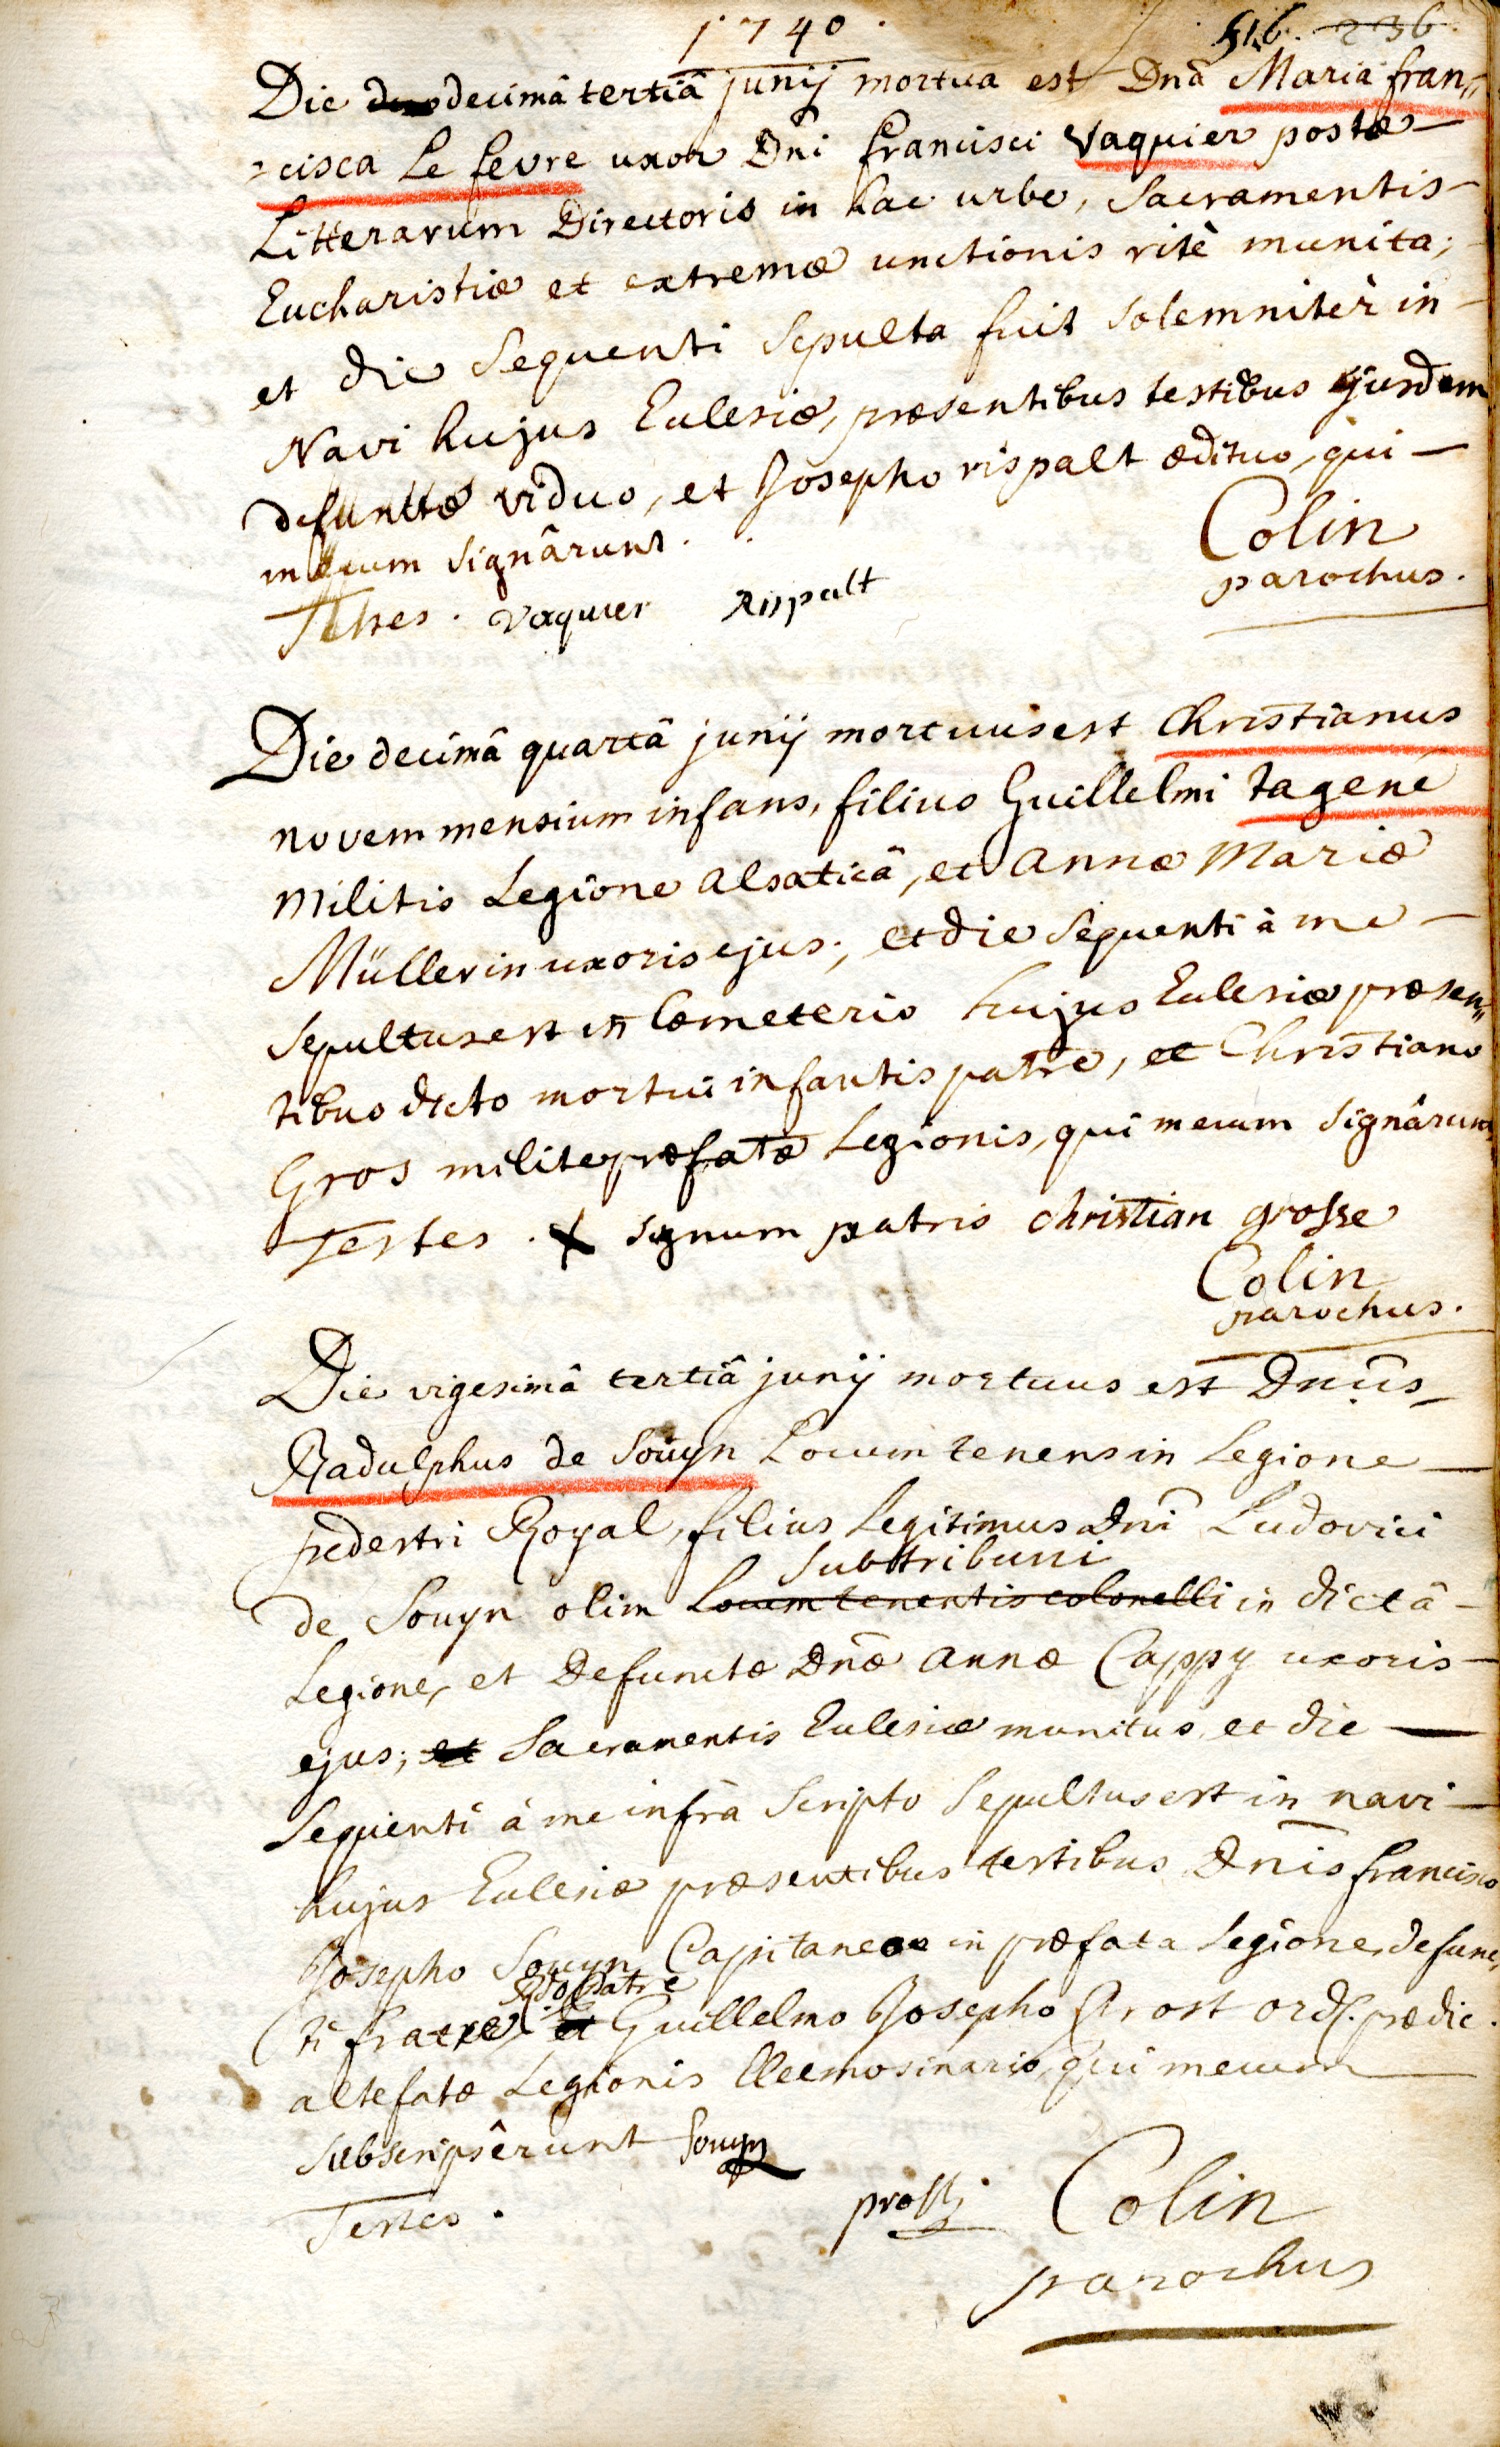 1740.
516. 236.
Die duodecimâ tertiâ junij mortua est Dnã Maria fran„
=cisca Le fevre uxor Dñi francisci Vaquier postæ
Litterarum Directoris in hac urbe, Sacramentis
Eucharistiæ et extremæ unctionis ritè munita;
et die Sequenti Sepulta fuit Solemnitèr in
Navi hujus Ecclesiæ, præsentibus testibus ejusdem
defunctæ viduo, et Josepho rispalt ædituo, qui
mecum Signârunt.
Colin
parochus.
Testes. vaquier Rispalt
Die decimâ quartâ junij mortuus est Christianus
novem mensium infans, filius Guillelmi tagene
Militis Legione alsaticâ, et annæ Mariæ
Müllerin uxoris ejus; et die Sequenti à me
Sepultus est in Cæmeterio hujus Ecclesiæ præsen„
tibus dicto mortui infantis patre, et Christiano
Gros milite præfatæ Legionis, qui mecum Signârunt
Testes. X Signum patris christian grosse
Colin
parochus.
Die vigesimâ tertiâ junij mortuus est Dnũs
Radulphus de Souyn Locum tenens in Legione
pedestri Royal, filius Legitimus Dñi Ludovici
Subtribuni
de Souyn olim Locum tenentis colonelli in dictâ
Legione, et Defunctæ Dnæ annæ Cappy uxoris
ejus; et Sacramentis Ecclesiæ munitus, et die
Sequenti à me infrà Scripto Sepultus est in navi
hujus Ecclesiæ præsentibus testibus Dñis francisco
Josepho Souyn Capitaneo in præfata Legione, defunc„
Rdo Patre
ti fratre, et Guillelmo Josepho Prost ord. prædic.
altefatæ Legionis Eleemosinario, qui mecum
Subscripsêrunt Souyn
Testes.
prost
Colin
parochus